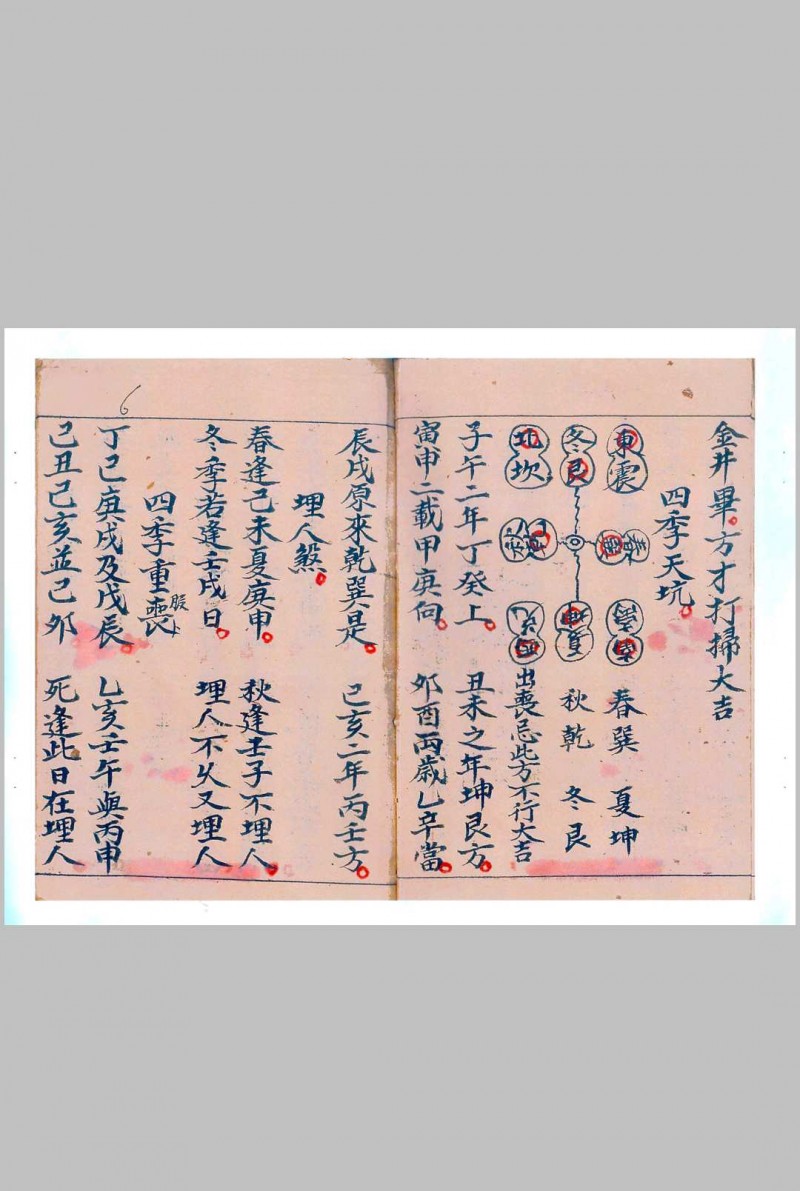 金井畢。方才打掃大吉
四季天坑。
東震
春
春巽 夏坤
冬艮
秋乾 冬艮
北坎
出喪忌此方不行大吉
子午二年丁癸上。 丑未之年坤艮方。
寅申二載甲庚向。 夘酉兩歲乙辛當。
辰戌原來乾巽是。 己亥二年丙壬方。
埋人煞。
春逢己未夏庚申。 秋逢壬子不埋人。
冬季若逢壬戌日。 埋人不久又埋人
四季重喪
丁己庚戌及戊辰。 乙亥壬午與丙申
己丑己亥並己夘 死逢此日在埋人
6